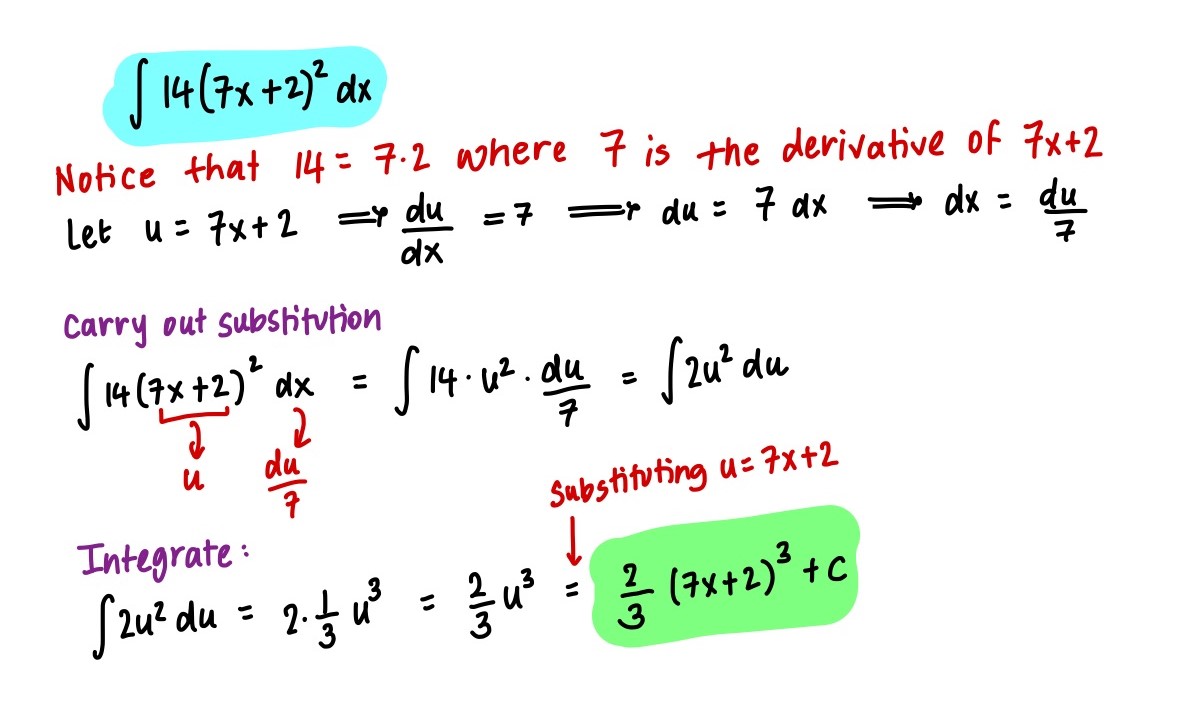 ∫ 14(7x+2)² dx
Notice that 14 = 7·2 where 7 is the derivative of 7x+2
Let u = 7x+2 ⟹ du/dx = 7 ⟹ du = 7 dx ⟹ dx = du/7
Carry out substitution
∫ 14(7x+2)² dx = ∫ 14·u²·du/7 = ∫ 2u² du
u du/7
Substituting u=7x+2
Integrate:
∫ 2u² du = 2·1/3 u³ = 2/3 u³ = 2/3 (7x+2)³ + C